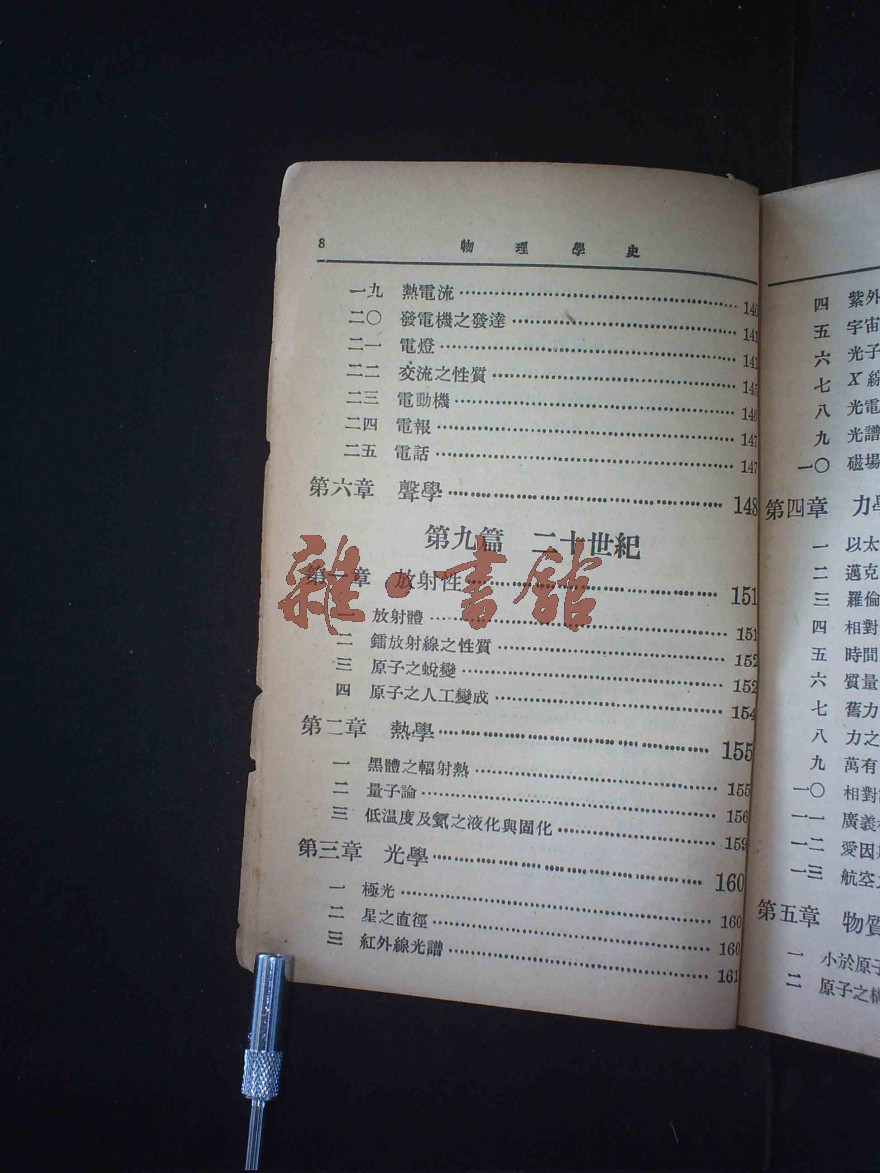 8 物理學史
一九 熱電流 140
二〇 發電機之發達 141
二一 電燈 141
二二 交流之性質 145
二三 電動機 146
二四 電報 147
二五 電話 147
第六章 聲學 148
第九篇 二十世紀
第一章 放射性 151
一 放射體 151
二 鐳放射線之性質 152
三 原子之蛻變 152
四 原子之人工變成 154
第二章 熱學 155
一 黑體之輻射熱 155
二 量子論 156
三 低溫度及氦之液化與固化 159
第三章 光學 160
一 極光 160
二 星之直徑 160
三 紅外線光譜 161
雜·書館
四 紫外
五 宇宙
六 光子
七 X線
八 光電
九 光譜
一〇 磁場
第四章 力學
一 以太
二 邁克
三 羅倫
四 相對
五 時間
六 質量
七 舊力
八 力之
九 萬有
一〇 相對
一一 廣義
一二 愛因
一三 航空
第五章 物質
一 小於原子
二 原子之構